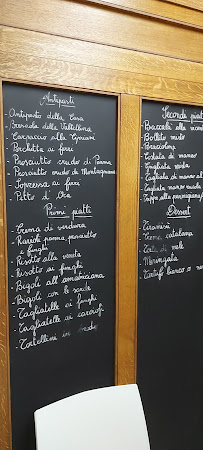 Antipasti
- Antipasto della Casa
- Bresaola della Valtellina
- Carpaccio alla Cipriani
- Porchetta ai ferri
- Prosciutto crudo di Parma
- Prosciutto crudo di Montagnana
- Sopressa ai ferri
- Petto d'Oca
Primi piatti
- Crema di verdura
- Ravioli panna, prosciutto
e funghi
- Risotto alla veneta
- Risotto ai funghi
- Bigoli all'amatriciana
- Bigoli con le sarde
- Tagliatelle ai funghi
- Tagliatelle ai carciofi
- Tortellini in brodo
Secondi piatti
- Braciola alla
- Bollito misto
- Costata di manzo
- Tagliata mista
- Tagliata di manzo al
- Tagliata manzo
- Trippa alla parmigiana
Dessert
- Tiramisù
- Crema catalana
- Torta di mele
- Meringata
- Tartufo bianco o